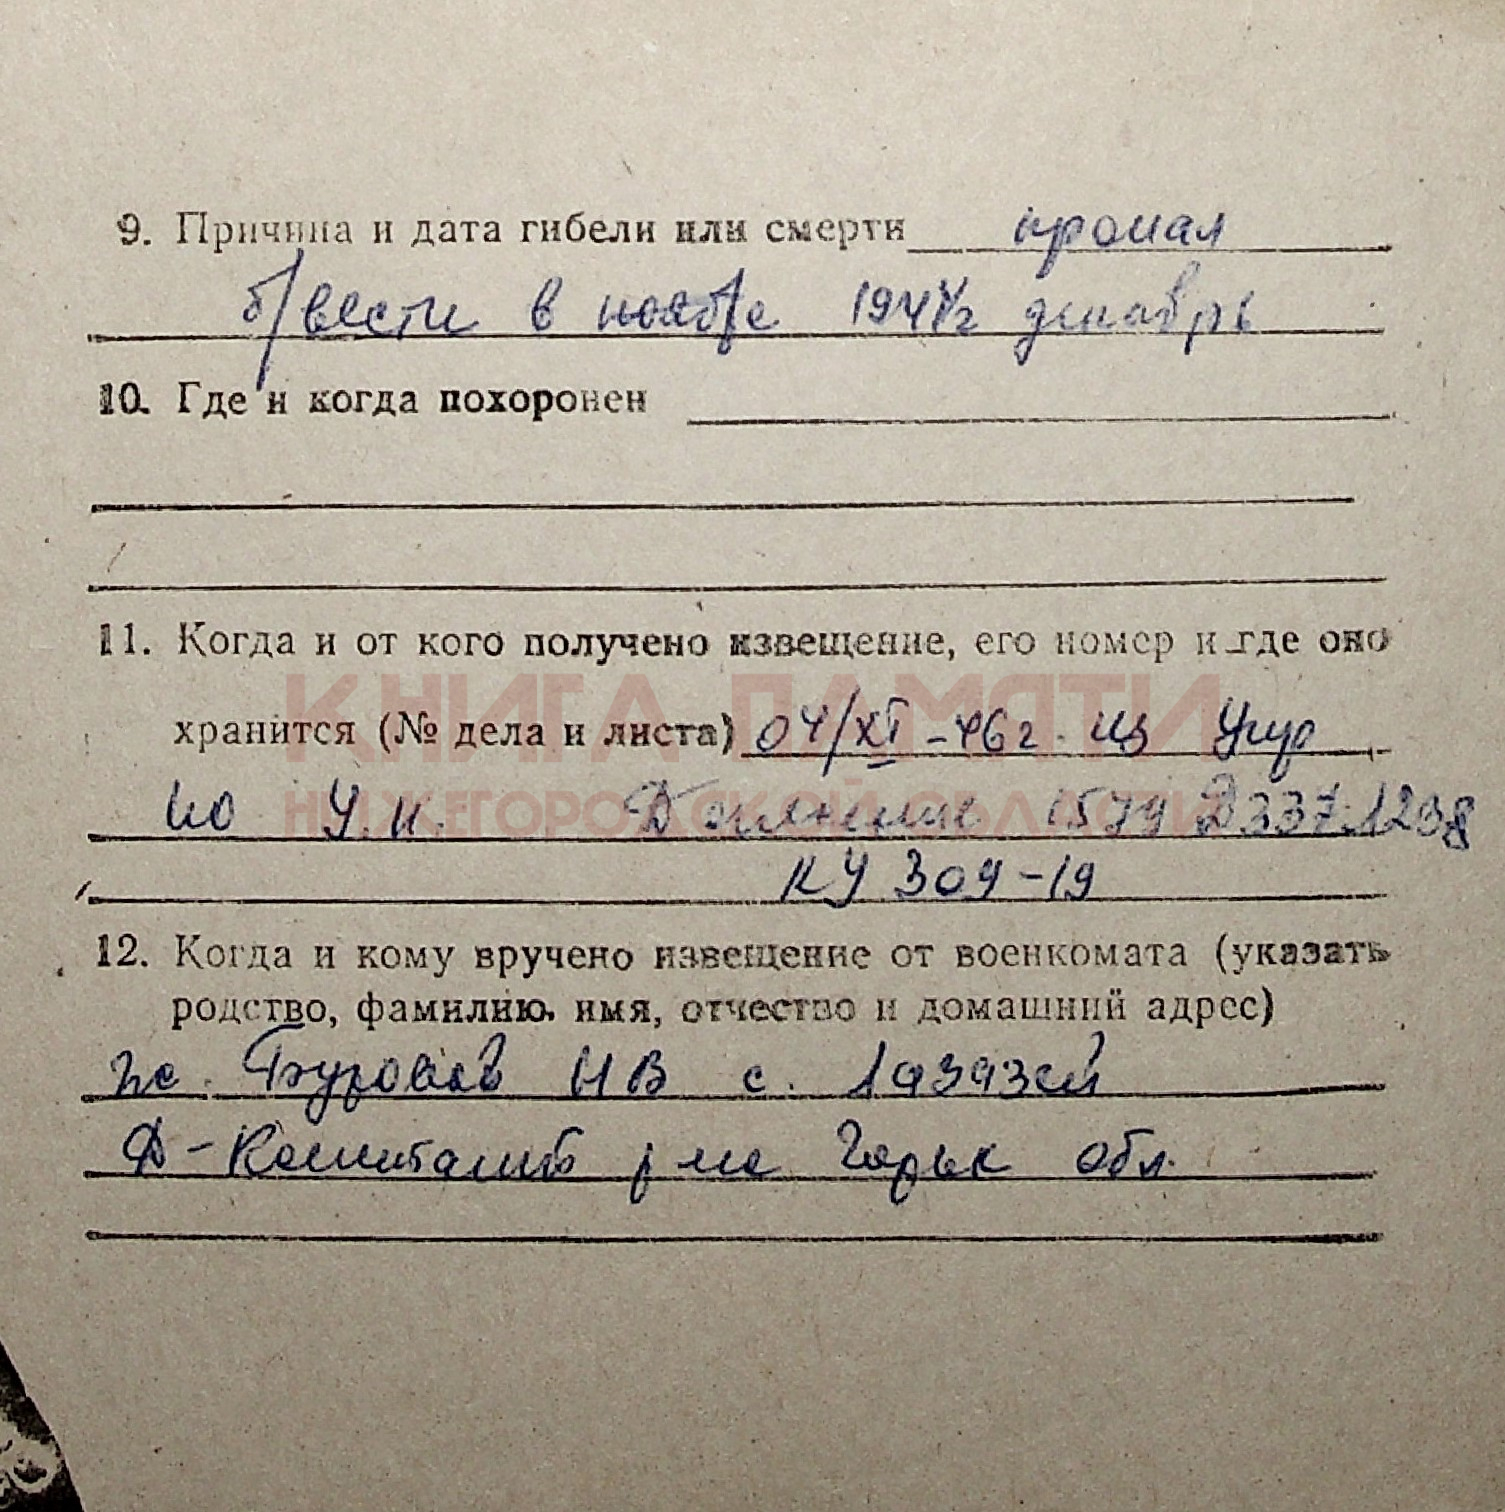 9. Причина и дата гибели или смерти пропал
б/вести в ноябре 1941/г декабрь
10. Где и когда похоронен
11. Когда и от кого получено извещение, его номер и где оно
КНИГА ПАМЯТИ
хранится (№ дела и листа) 04/XI-46г. из Упр
по У.п. Д 1238
НИЖЕГОРОДСКОЙ ОБЛАСТИ
КУ 309-19
12. Когда и кому вручено извещение от военкомата (указать
родство, фамилию, имя, отчество и домашний адрес)
НВ с.
Д-Константин р-на Горьк обл.